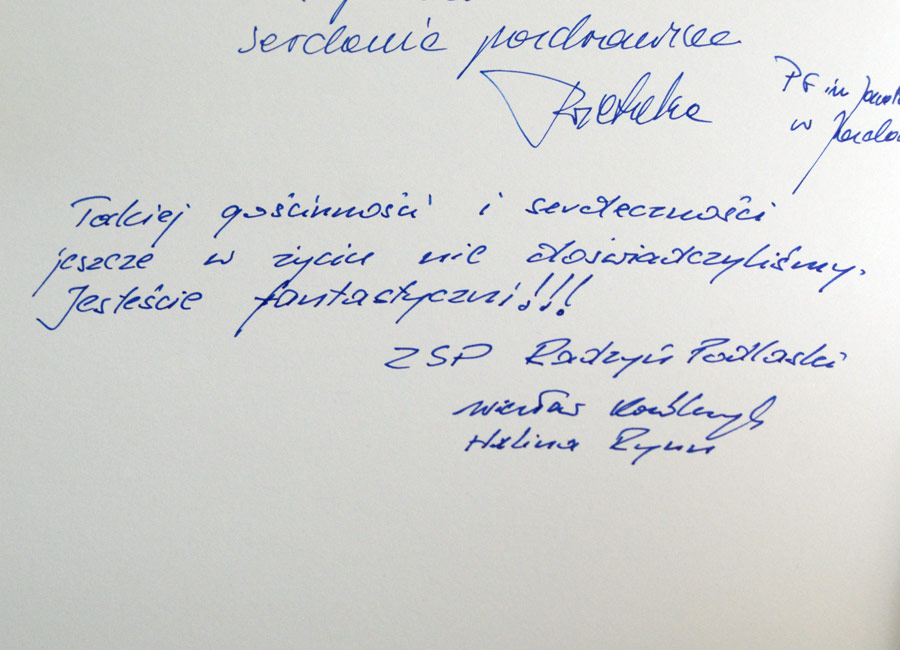 serdecznie pozdrawiam
PG im
w
Takiej gościnności i serdeczności
jeszcze w życiu nie doświadczyliśmy.
Jesteście fantastyczni!!!
ZSP Radzyń Podlaski
Wiesław
Halina Rymu